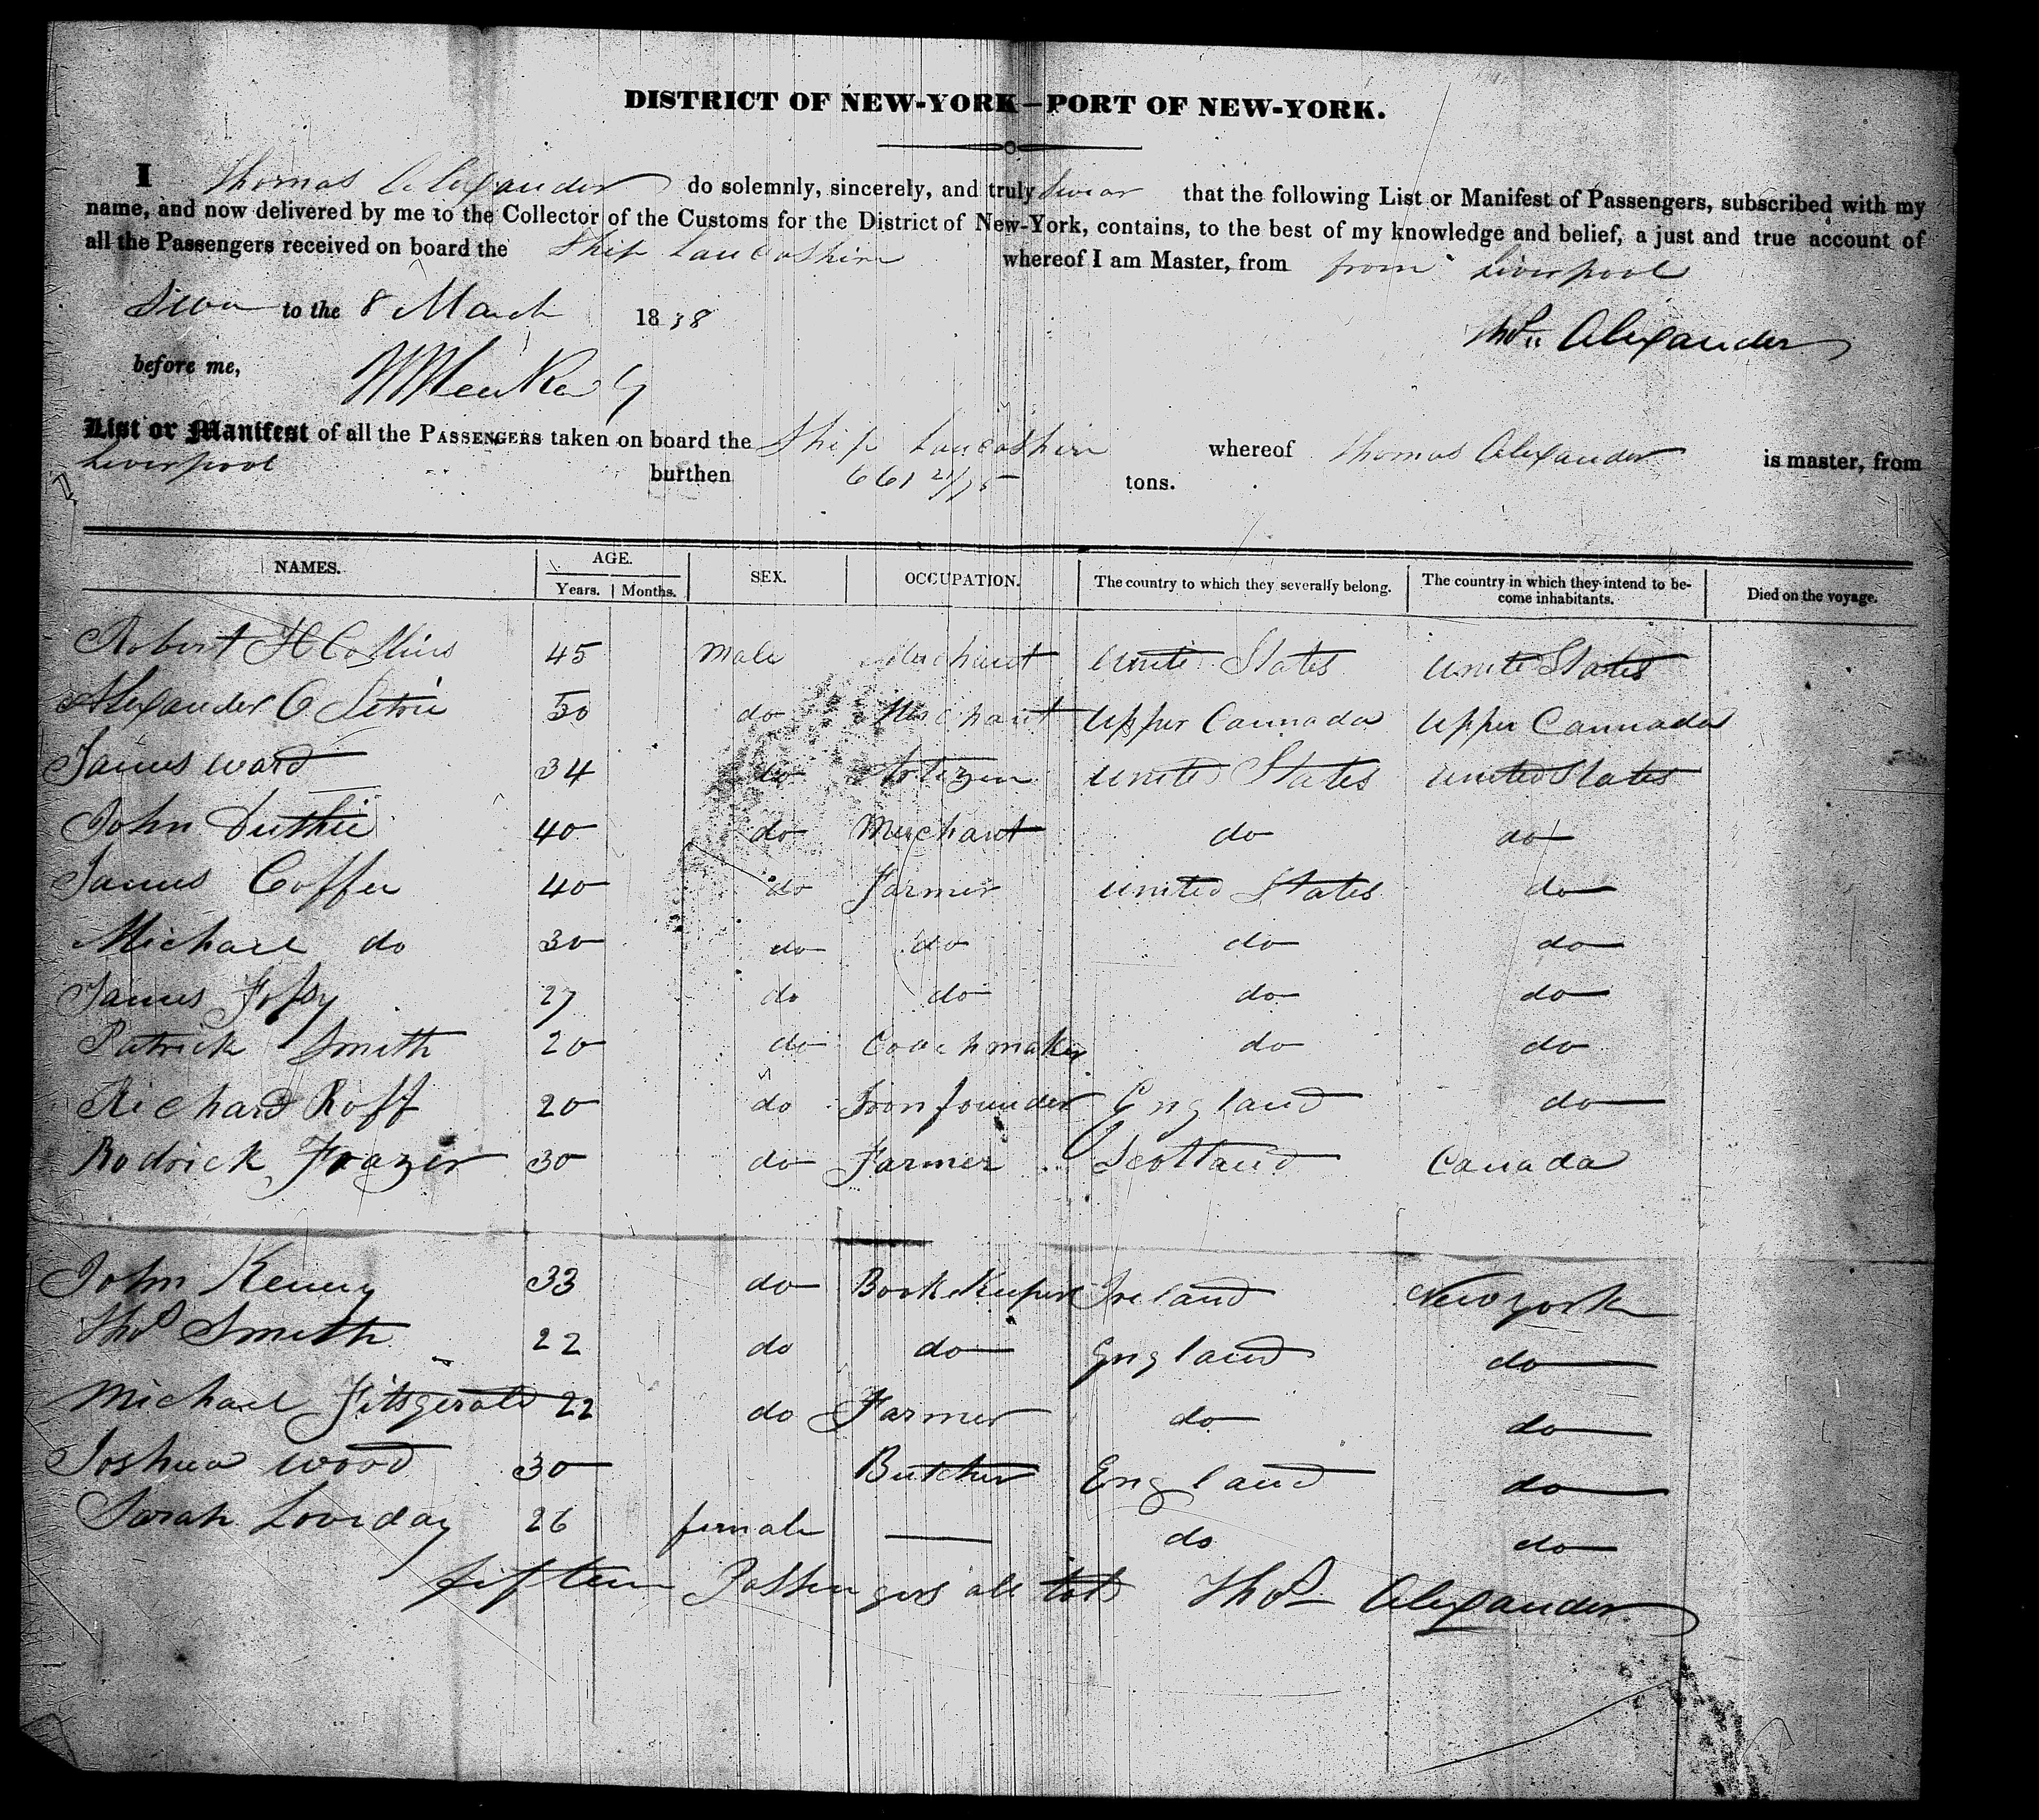 DISTRICT OF NEW-YORK—PORT OF NEW-YORK.
I Thomas Alexander do solemnly, sincerely, and truly swear that the following List or Manifest of Passengers, subscribed with my
name, and now delivered by me to the Collector of the Customs for the District of New-York, contains, to the best of my knowledge and belief, a just and true account of
all the Passengers received on board the Ship Lancashire whereof I am Master, from from Liverpool
to the 8 March 1838
Thos Alexander
before me,
List or Manifest of all the PASSENGERS taken on board the Ship Lancashire whereof Thomas Alexander is master, from
Liverpool burthen 661 21/75 tons.
NAMES. AGE. SEX. OCCUPATION. The country to which they severally belong. The country in which they intend to be-
come inhabitants. Died on the voyage.
Years. Months.
Robert H Collins 45 male Merchant United States United States
Alexander 50 do Merchant Upper Cannada Upper Cannada
James Ward 34 do Artizen United States United States
John Duthie 40 do Merchant do do
James Coffee 40 do Farmer United States do
Michael do 30 do do do do
James 27 do do do do
Patrick Smith 20 do Coachmaker do do
Richard Roff 20 do Iron founder England do
Rodrick Frazer 30 do Farmer Scotland Canada
John Kenny 33 do Book Keeper Ireland New york
Thos Smith 22 do do England do
Michael Fitsgerald 22 do Farmer do do
Joshua Wood 30 Butcher England do
Sarah Loveday 26 female — do do
fifteen Passengers all told Thos Alexander